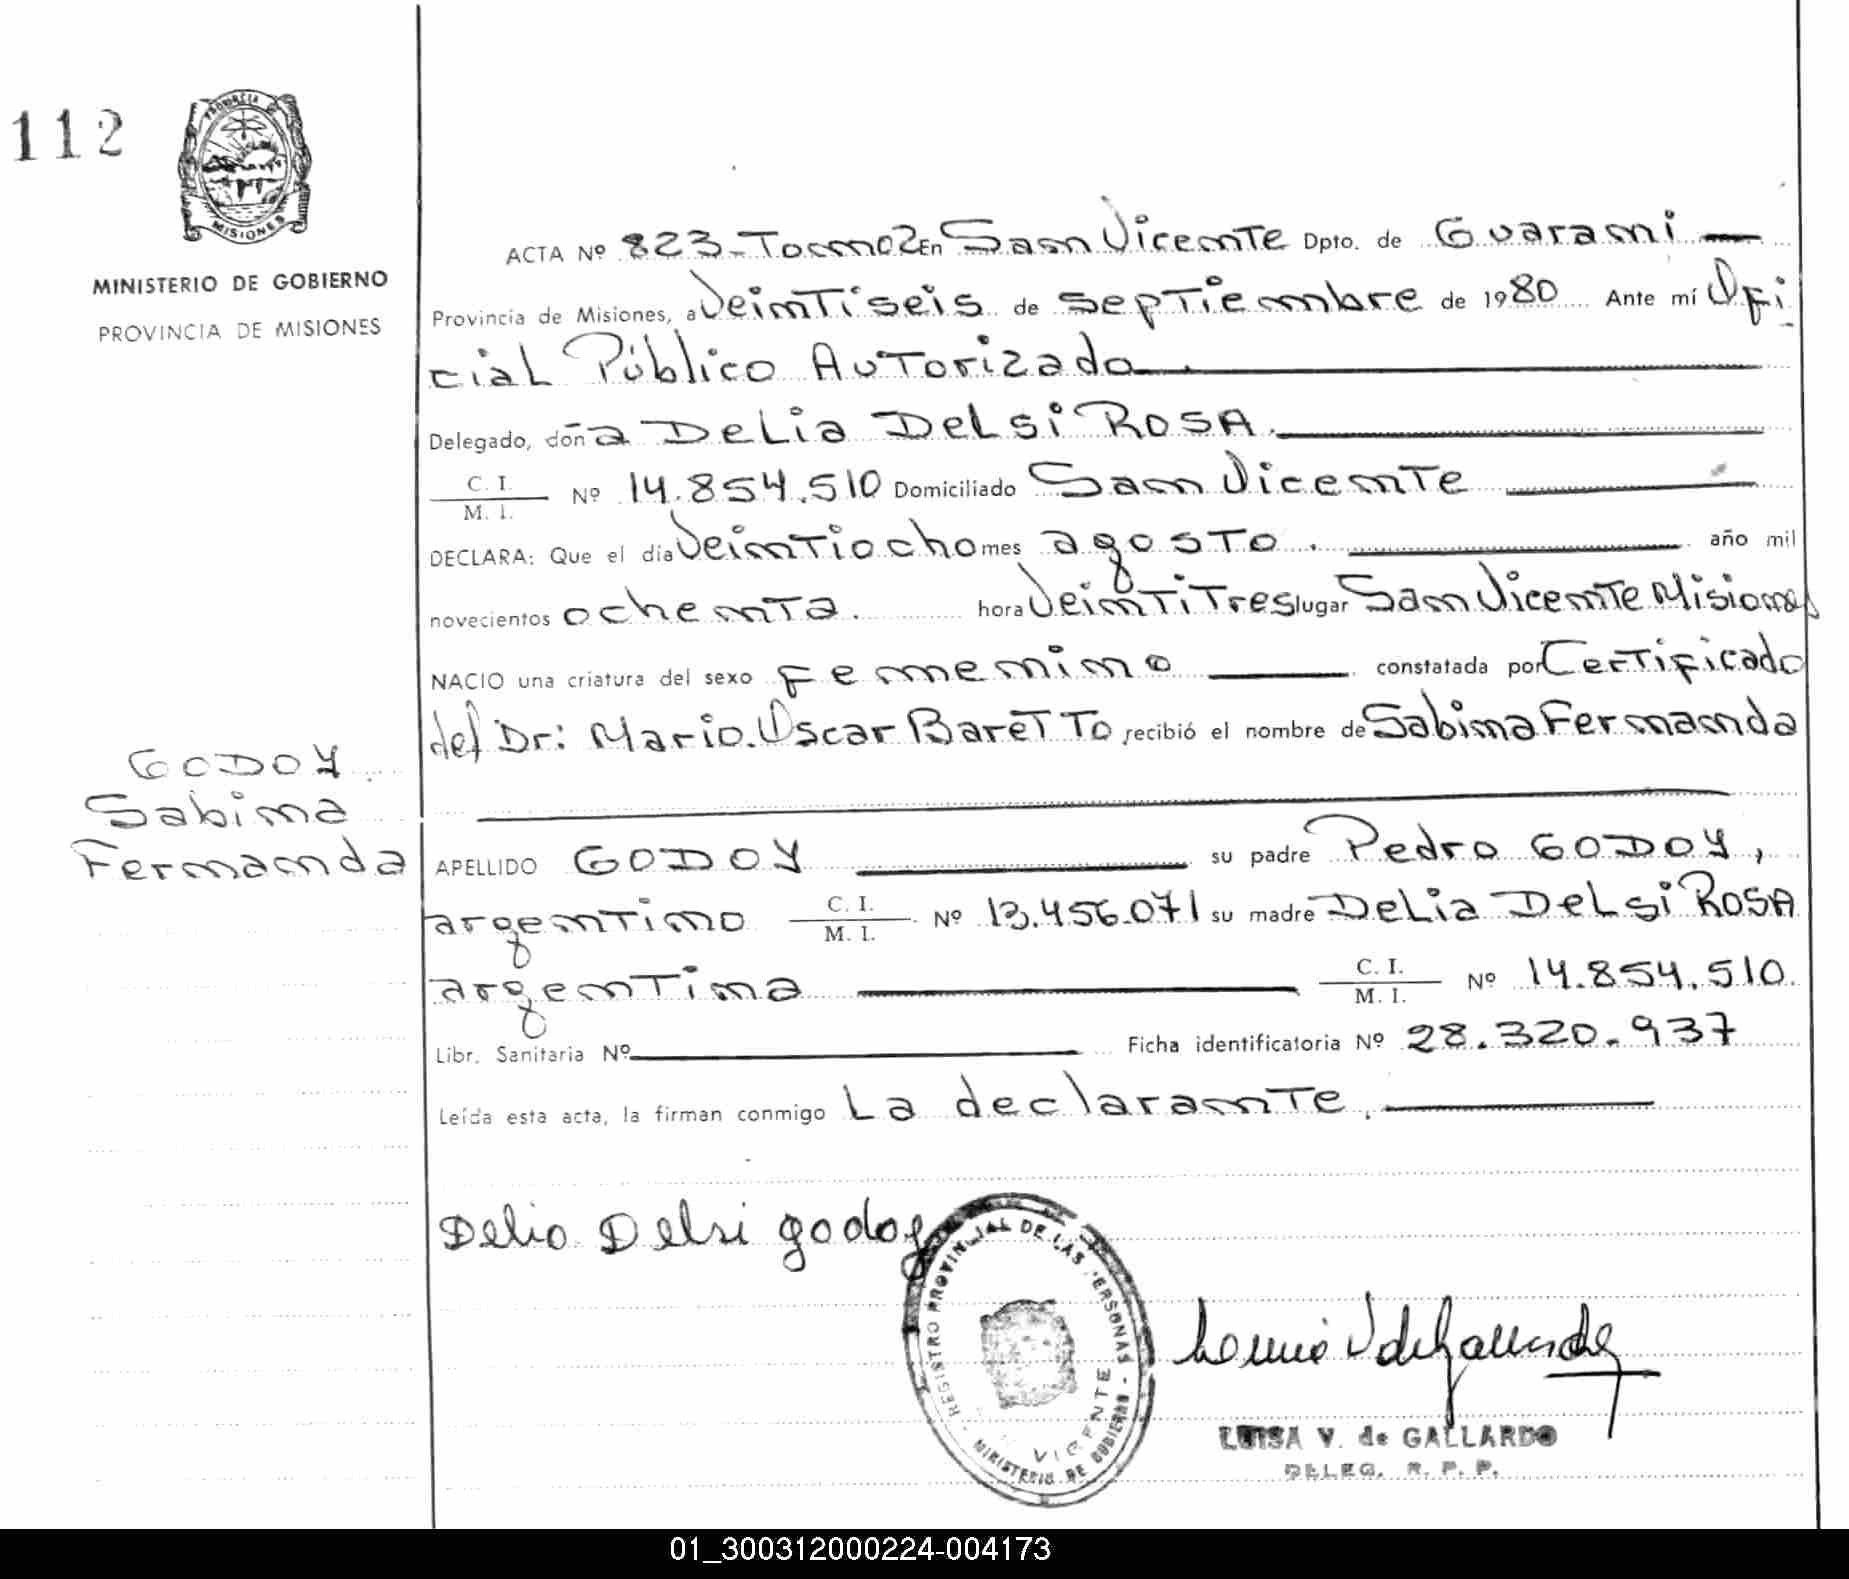 112
PROVINCIA
MISIONES
MINISTERIO DE GOBIERNO
PROVINCIA DE MISIONES
ACTA Nº 823-Tomo2 En San Vicente Dpto. de Guaraní
Provincia de Misiones, a Veintiseis de septiembre de 1980 Ante mí Ofi
cial Público Autorizado.
Delegado, doña DeLia DeLsi ROSA.
C. I.
M. I. Nº 14.854.510 Domiciliado San Vicente
DECLARA: Que el día Veintiocho mes agosto. año mil
novecientos ochenta. hora Veintitres lugar San Vicente Misiones
NACIO una criatura del sexo femenino constatada por Certificado
del Dr: Mario.Oscar BareTTo recibió el nombre de Sabina Fernanda
GODOY
Sabina
Fernanda
APELLIDO GODOY su padre Pedro GODOY,
argentino C. I.
M. I. Nº 13.456.071 su madre DeLia DeLsi ROSA
argentina C. I.
M. I. Nº 14.854.510.
Libr. Sanitaria Nº Ficha identificatoria Nº 28.320.937
Leída esta acta, la firman conmigo La declarante.
Delia Delsi godoy
REGISTRO PROVINCIAL DE LAS PERSONAS - MINISTERIO DE GOBIERNO -
VICENTE
LUISA V. de GALLARDO
DELEG. R. P. P.
01_300312000224-004173